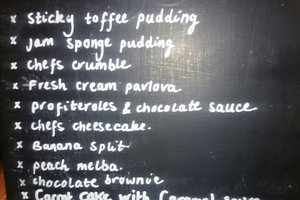 x Sticky toffee pudding
x Jam sponge pudding
x chefs crumble
x Fresh cream pavlova
x profiteroles & chocolate sauce
x chefs cheesecake.
x Banana split
x peach melba.
x chocolate brownie
x Carrot cake with Caramel sauce